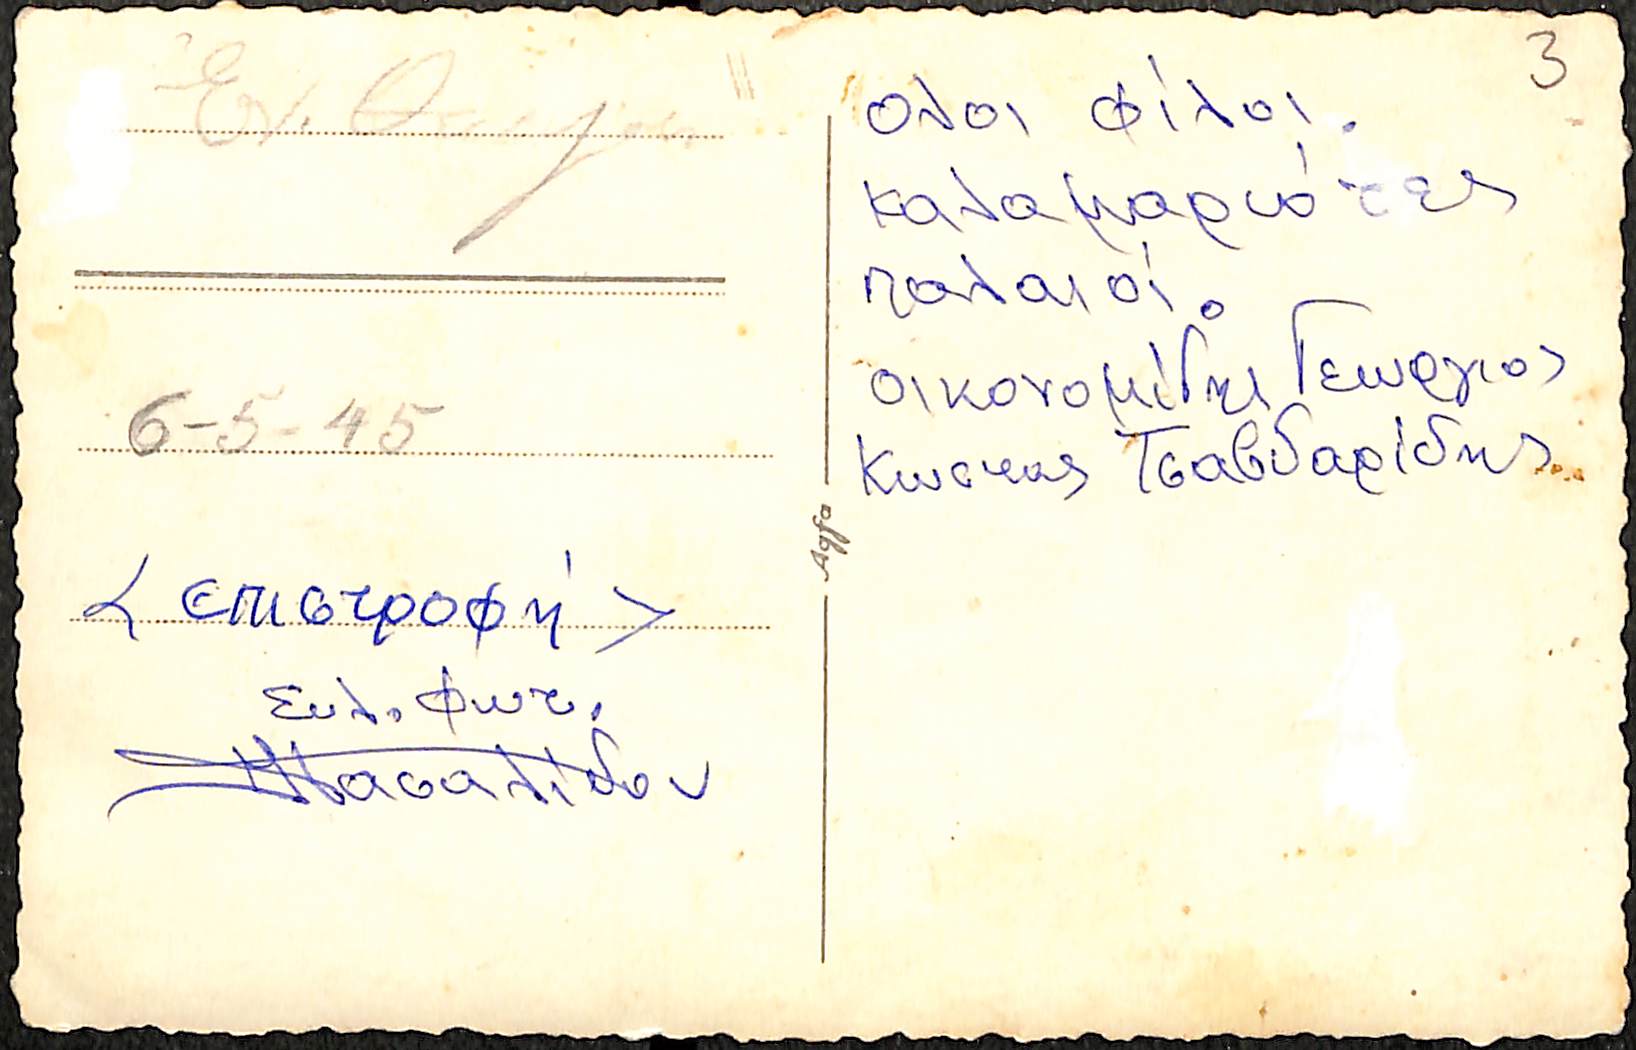 Ἐν
6-5-45
<επιστροφή>
Συλ. φωτ.
Πασαλίδου
Agfa
3
ολοι φίλοι.
καλαμαριώτες
παλαιοί.
οικονομίδης Γεώργιος
Κωστας Τσαβδαρίδης